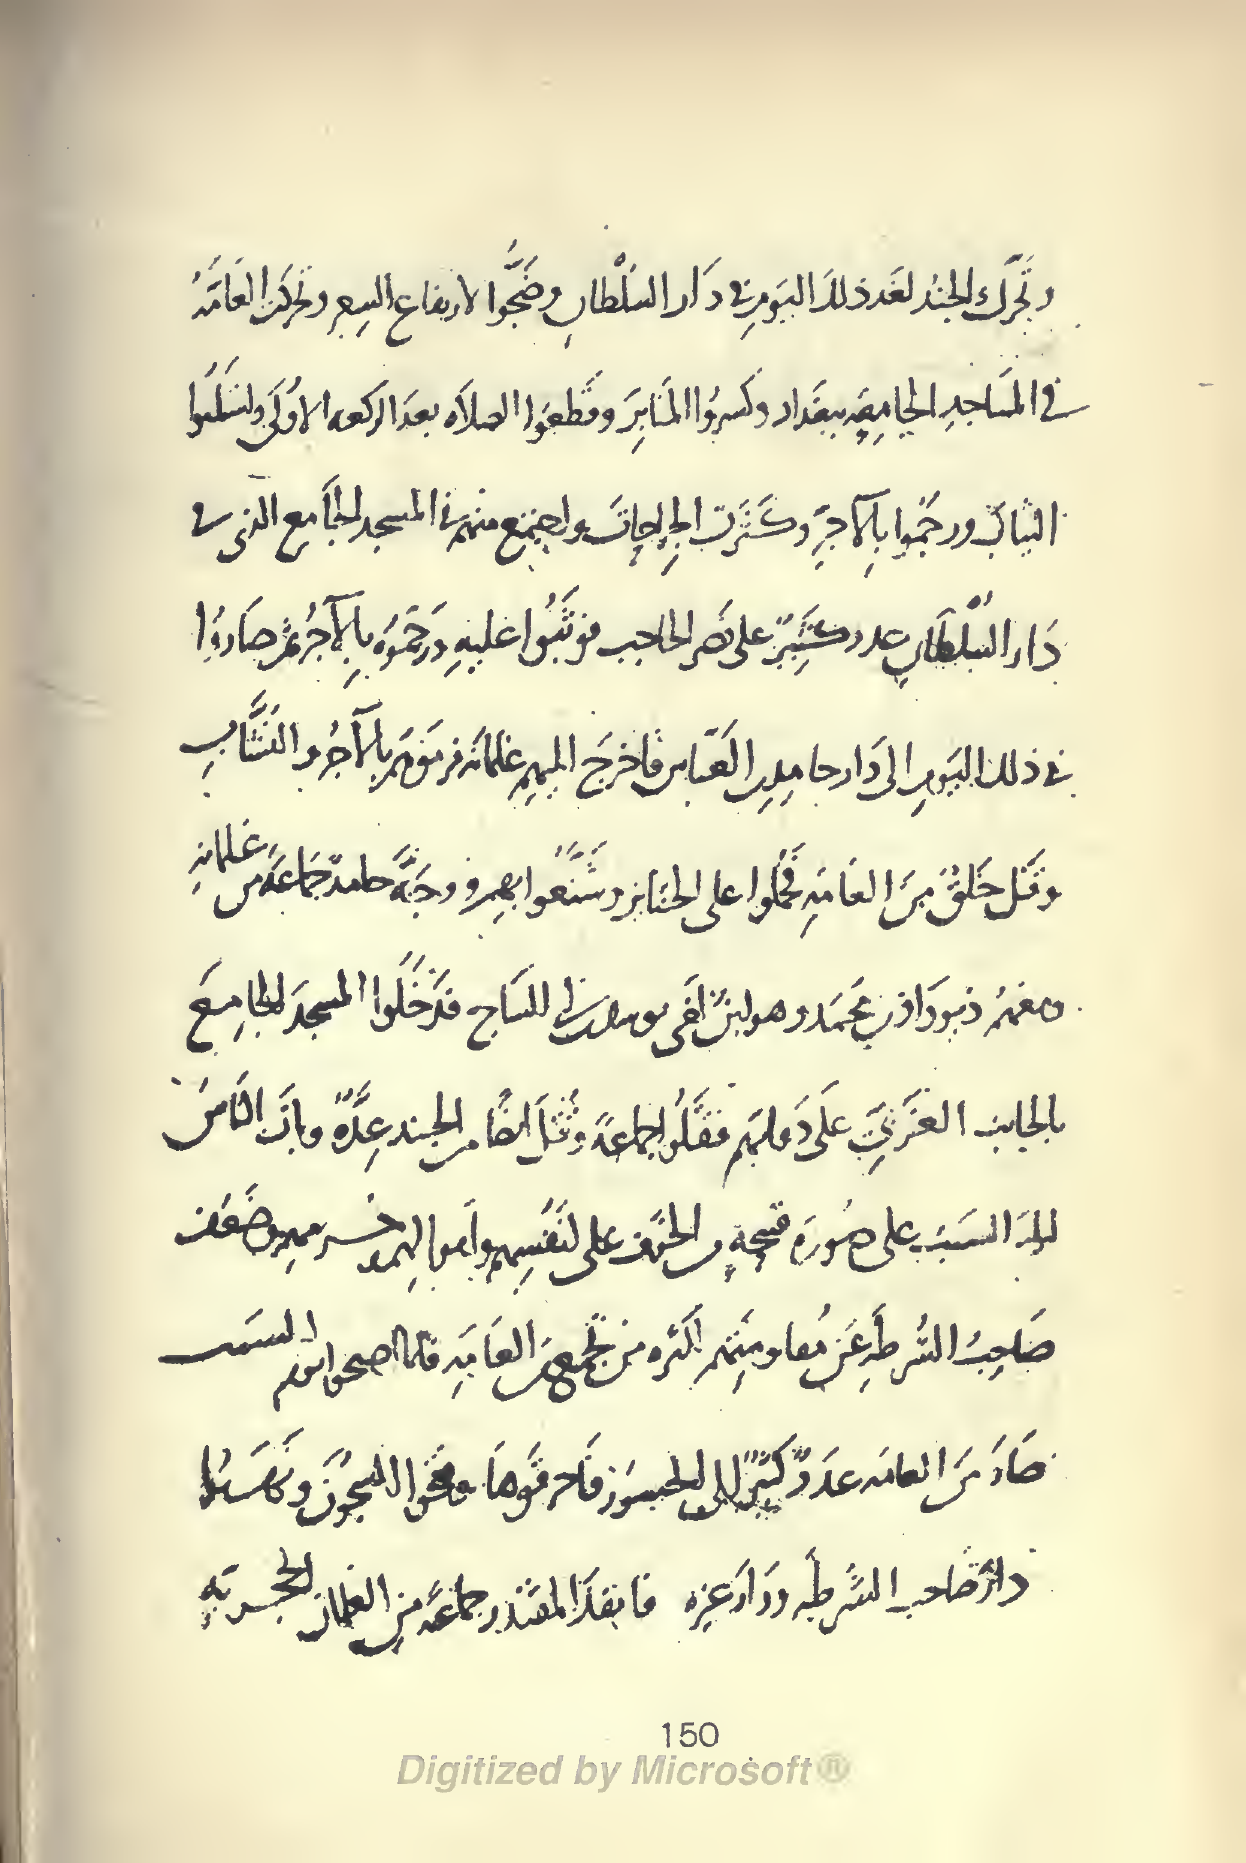 وتحرّك الجند لغد ذلك اليوم في دَار السُلْطان وضَجُّوا لارتفاع السِعر وتحركت العَامَّةُ
في المسَاجدِ الجامِعَه ببغَداد وكسروُا المنَابِرَ وقَطعَوا الصلاَه بعدَ الركعه الاوُلَى واستَلبُوا
الثيابَ ورجمُوا بِالآجرِّ وكَثُرَت الجراحاتَ واجتمع منهم في المسجد الجامع الذي في
دَار السُلْطان عدد كَثِيرٌ على نَصر الحاجب فوثَبُوا عليهِ ورَجَمُوَه بِالآجُرِّ ثم صَاروُا
في ذلك اليَومِ الى دَار حامِدِ بنِ العَبّاس فاخرجَ اليهم غلمانَه فرموَهَم بالآجرُ والنُشَّابِ
وقُتل خَلقٌ مِنَ العَامَةِ فحُملُوا على الجنَايز وشَنَّعوا بهم ووجَّهَ حامدٌ جَماعَةً من غلمانهِ
ومعَهُم بن محمَد وهو ابن فدَخَلُوا المسجدَ الجامِعَ
بالجانب الغَربيِّ عَلَى دَوابِهم فقَتَلُوا جماعةً وقُتلَ ايضًا من الجند عِدَّةٌ وباتَ النَاسُ
ليلة السَبت على صُورَة قبيحةٍ من الخَوف على انفُسِهم وأموالهم وحُرمهم وضَعُف
صَاحِبُ الشُرطَةِ عَن مُعاومَتِهم لكثره من تجمع مَن العَامَةِ فلما اصبحوا يوم السبت
صَارَ مَن العامَه عدَدٌ كَثِيرٌ الى الجسوَر فاحرقَوهَا وفتحَوا السجُونَ ونهَبَوا
دارَ صَاحب الشُرطَه ودَارَ غيره فانفذ المقتَدر جماعةً مِنَ الغلمان الحجريةِ
150
Digitized by Microsoft®